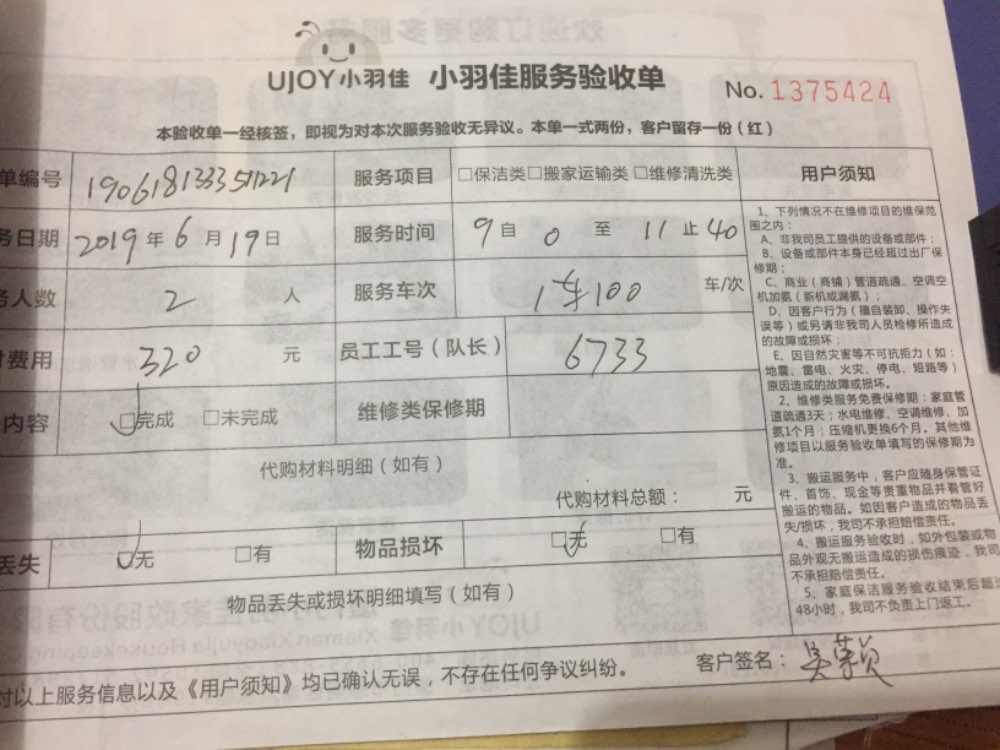 UJOY小羽佳 小羽佳服务验收单
No. 1375424
本验收单一经核签，即视为对本次服务验收无异议。本单一式两份，客户留存一份（红）
单编号 服务项目 □保洁类□搬家运输类□维修清洗类
务日期 2019年6月19日 服务时间 9自0至11止40
务人数 2人 服务车次 1车100 车/次
费用 320元 员工工号（队长） 6733
内容 □完成 □未完成 维修类保修期
代购材料明细（如有）
代购材料总额： 元
丢失 □无 □有 物品损坏 □无 □有
物品丢失或损坏明细填写（如有）
对以上服务信息以及《用户须知》均已确认无误，不存在任何争议纠纷。
客户签名：
用户须知
1、下列情况不在维修项目的维保范
围之内：
A、非我司员工提供的设备或部件；
B、设备或部件本身已经超过出厂保
修期；
C、商业（商铺）管道疏通、空调空
机加氨（新机或漏氨）；
D、因客户行为（擅自装卸、操作失
误等）或另请非我司人员检修所造成
的故障或损坏；
E、因自然灾害等不可抗拒力（如：
地震、雷电、火灾、停电、短路等）
原因造成的故障或损坏。
2、维修类服务免费保修期：家庭管
道疏通3天；水电维修、空调维修、加
氨1个月；压缩机更换6个月。其他维
修项目以服务验收单填写的保修期为
准。
3、搬运服务中，客户应随身保管证
件、首饰、现金等贵重物品并看管好
搬运的物品。如因客户造成的物品丢
失/损坏，我司不承担赔偿责任。
4、搬运服务验收时，如外包装或物
品外观无搬运造成的损伤痕迹，我司
不承担赔偿责任。
5、家庭保洁服务验收结束后超过
48小时，我司不负责上门返工。